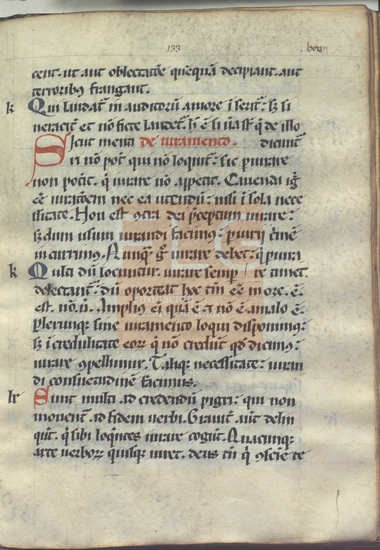 133 . lxvii
cent. ut aut oblectatõe quẽquã decipiant. aut
terroribus frangant.
k Qui laudat᷑ in auditorũ amore iserit᷑: s; si
ueracit᷑ et nõ ficte laudet᷑. h̃ ẽ si ita s̃t q̃ de illo
Sicut menti de iuramento. dicunt᷑
ri nõ pot̃ qui nõ loquit᷑: sic p̃iurare
non potit. q̃ iurare nõ appetit. Cauenda ig̃
ẽ iuratõem nec ea utendũ: nisi i sola nece
ssitate. Non est ꝯtra dei p̃ceptum iurare:
s; dum usum iurandi facimus: p̃iurij c̃mẽ
incurrimus. Nunq̃ g̃ iurare debet: q̃ p̃iurare
k Multa dũ locuntur. iurare semp̃ te timet.
delectant᷑: dũ oporteat hoc tm̃ ẽẽ in ore. ẽ.
est. nõ. ñ. Ampliꝰ ei quã ẽ et nõ ẽ. a malo ẽ.
Plerunqꝫ sine iuramento loqui disponimꝰ:
s; incredulitate eorꝫ q̃ nõ credũt qd̃ dicimꝰ:
iurare ꝯpellimur. Taliqꝫ necessitate: iuran
di consuetudinẽ facimus.
k Sunt multi ad credendũ pigri: qui non
mouent᷑ ad fidem uerbi. Grauit᷑ aut̃ delin
qũt. q̃ sibi loq̃ntes iurare cogũt. Quacunqꝫ
arte uerborꝫ quisqꝫ iuret. deus tm̃ q̃ ꝯscie te